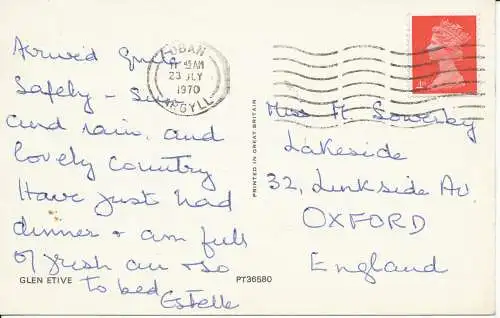 Arrived quite
Safely – Sun
and rain and
lovely country
Have just had
dinner + am full
of fresh air + so
to bed
Estelle
GLEN ETIVE
PT36580
PRINTED IN GREAT BRITAIN
OBAN
11 45 AM
23 JLY
1970
ARGYLL
Miss M. Sowerby
Lakeside
32, Linkside Av.
OXFORD
England